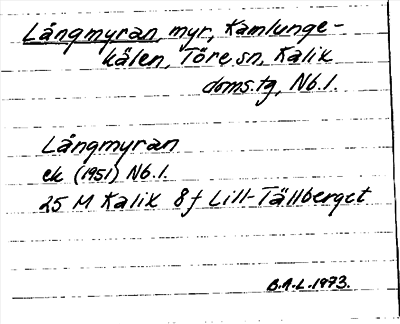 Långmyran, myr, Kamlunge-
kälen, Töre sn, Kalix
doms.tg, Nb.l.
Långmyran
ek (1951) Nb.l.
25 M Kalix 8f Lill-Tällberget
B.A-L.1973.